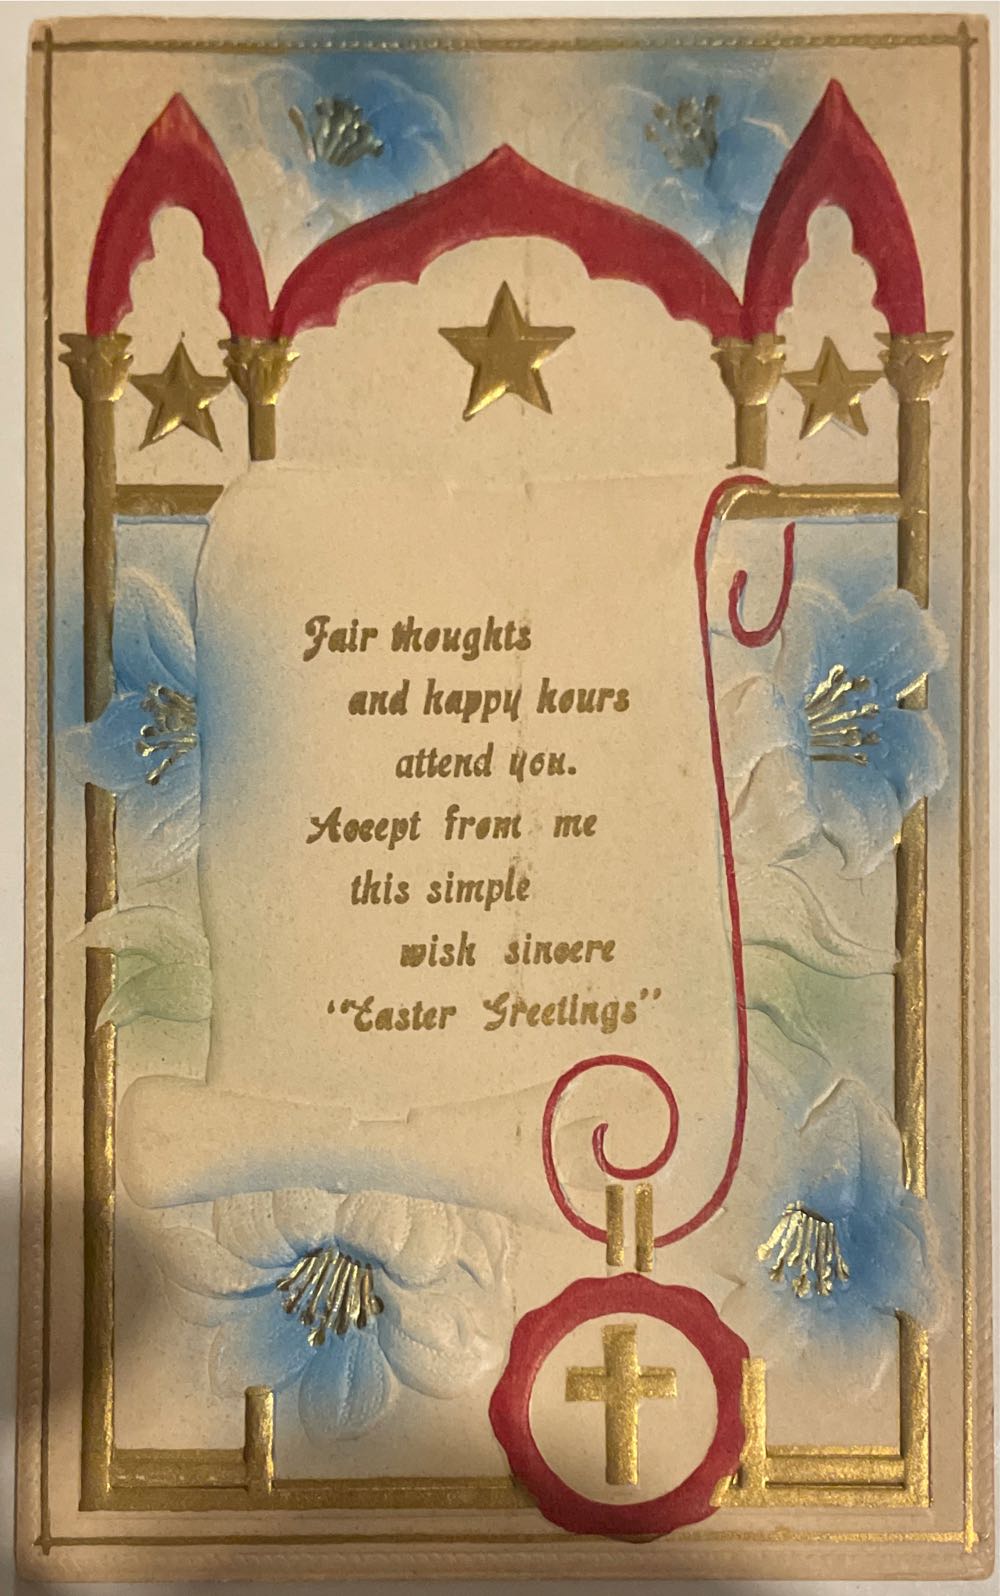 Fair thoughts
and happy hours
attend you.
Accept from me
this simple
wish sincere
"Easter Greetings"